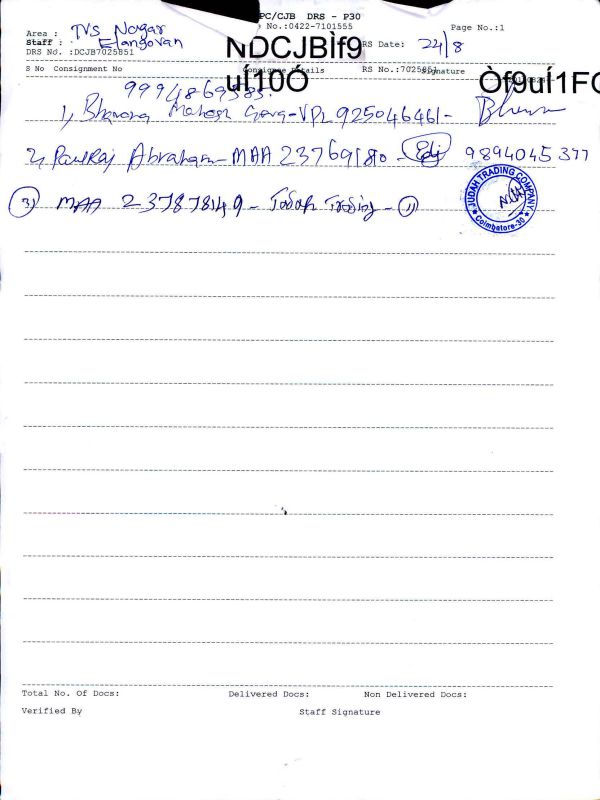 PC/CJB DRS - P30
No.:0422-7101555
Page No.:1
Area : TVS Nagar
Staff : Elangovan
DRS No. :DCJB7025851
NDCJBÌf9
RS Date: 24/8
uÍ10Ó
Òf9uÍ1FC
S No Consignment No Consignee Details RS No.:7025851 Signature
1, Bhavana VPL925046461-
2, Paulraj Abraham - MAA 237691810 - 9894045377
3) MAA 23787849 - Judah Trading - 11
JUDAH TRADING COMPANY
Coimbatore-30
Total No. Of Docs: Delivered Docs: Non Delivered Docs:
Verified By Staff Signature